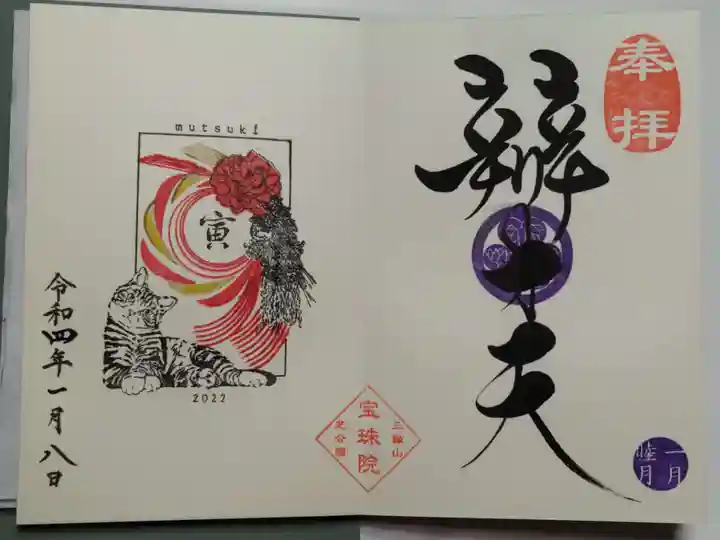 奉拝
辯才天
一月
睦月
三縁山
宝珠院
芝公園
mutsuki
寅
2022
令和四年一月八日